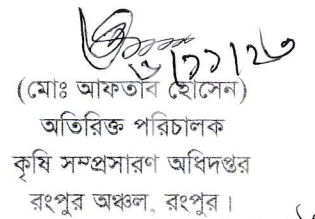 ৬/১১/২৩
(মোঃ আফতাব হোসেন)
অতিরিক্ত পরিচালক
কৃষি সম্প্রসারণ অধিদপ্তর
রংপুর অঞ্চল, রংপুর।